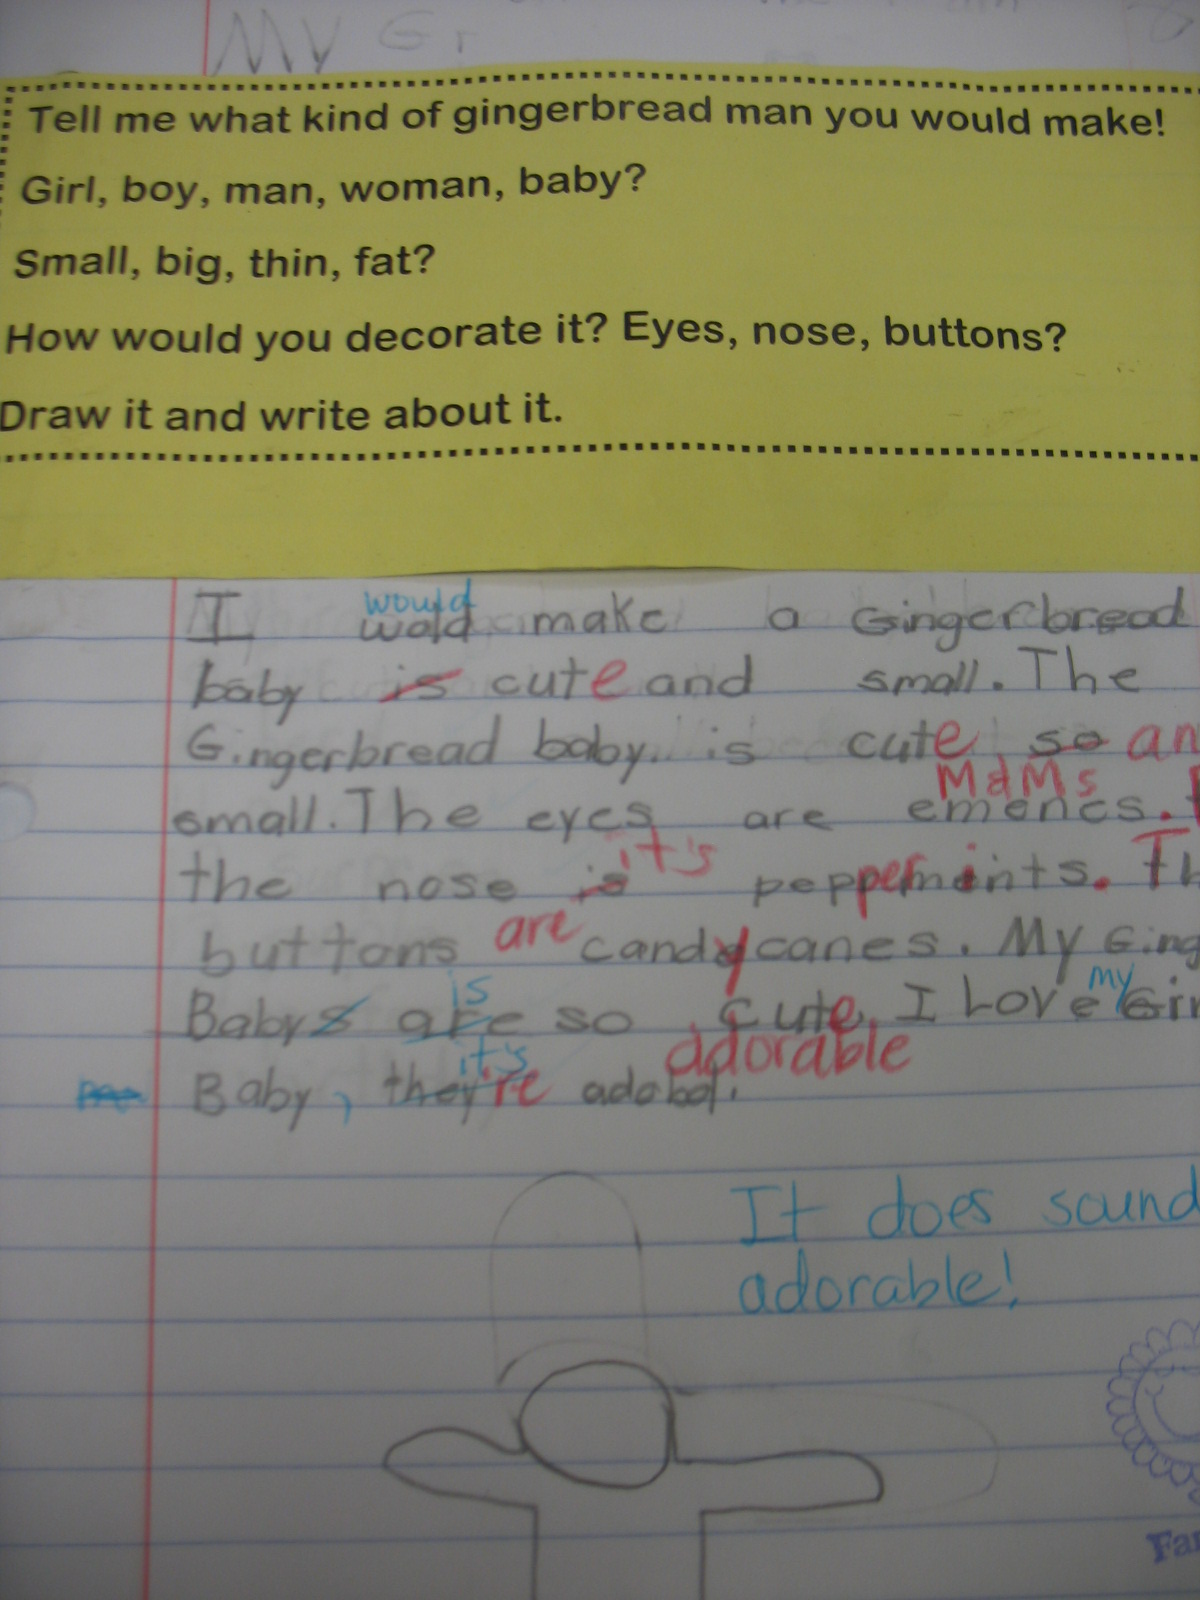 My Gr
Tell me what kind of gingerbread man you would make!
Girl, boy, man, woman, baby?
Small, big, thin, fat?
How would you decorate it? Eyes, nose, buttons?
Draw it and write about it.
would
I wold make a Gingerbread
baby is cute and small. The
Gingerbread baby is cute so an
M&Ms
small. The eyes are emenes.
it's
the nose is peppermints. Th
buttons are candy canes. My Ging
is my
Babys are so cute. I Love Gin
it's adorable
Baby, they're adabol.
It does sound
adorable!
Fa